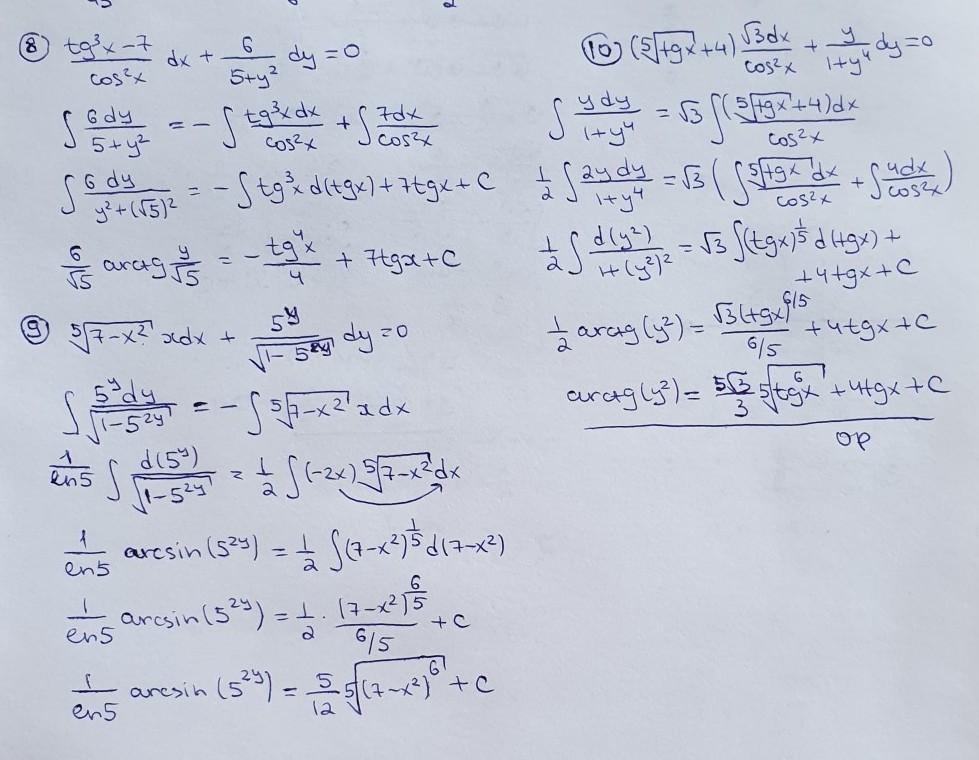 ⑧ (tg³x-7)/cos²x dx + 6/(5+y²) dy = 0
∫ 6dy/(5+y²) = -∫ tg³xdx/cos²x + ∫ 7dx/cos²x
∫ 6dy/(y²+(√5)²) = -∫tg³x d(tgx)+7tgx+C
6/√5 arctg y/√5 = - tg⁴x/4 + 7tgx+C
⑨ ⁵√(7-x²) xdx + 5^y/√(1-5^(2y)) dy=0
∫ 5^y dy/√(1-5^(2y)) = -∫ ⁵√(7-x²) xdx
1/ln5 ∫ d(5^y)/√(1-5^(2y)) = 1/2 ∫(-2x) ⁵√(7-x²) dx
1/ln5 arcsin(5^(2y)) = 1/2 ∫(7-x²)^(1/5) d(7-x²)
1/ln5 arcsin(5^(2y)) = 1/2 · (7-x²)^(6/5)/(6/5) + C
1/ln5 arcsin(5^(2y)) = 5/12 ⁵√((7-x²)⁶) + C
⑩ (⁵√(tgx)+4) √3dx/cos²x + y/(1+y⁴) dy=0
∫ ydy/(1+y⁴) = √3 ∫ (⁵√(tgx)+4)dx/cos²x
1/2 ∫ 2ydy/(1+y⁴) = √3 (∫ ⁵√(tgx) dx/cos²x + ∫ 4dx/cos²x)
1/2 ∫ d(y²)/(1+(y²)²) = √3 ∫(tgx)^(1/5) d(tgx) +
+4tgx+C
1/2 arctg(y²) = √3(tgx)^(6/5)/(6/5) + 4tgx+C
arctg(y²) = 5√3/3 ⁵√(tg⁶x) + 4tgx+C
op